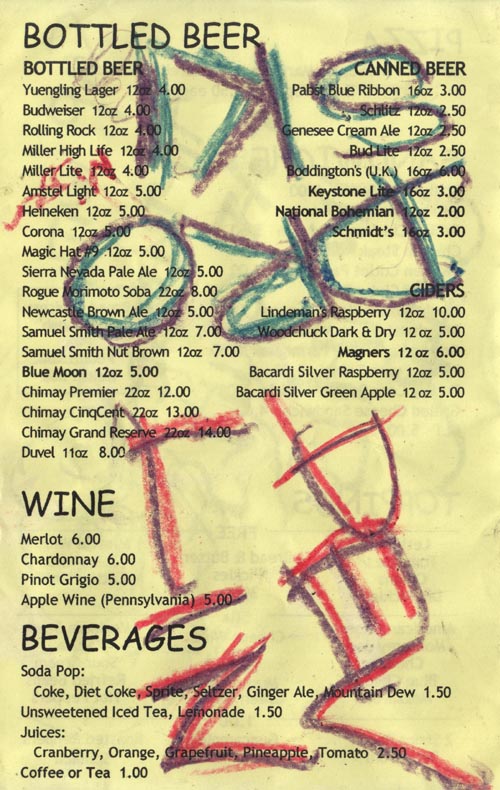 BOTTLED BEER
BOTTLED BEER
Yuengling Lager 12oz 4.00
Budweiser 12oz 4.00
Rolling Rock 12oz 4.00
Miller High Life 12oz 4.00
Miller Lite 12oz 4.00
Amstel Light 12oz 5.00
Heineken 12oz 5.00
Corona 12oz 5.00
Magic Hat #9 12oz 5.00
Sierra Nevada Pale Ale 12oz 5.00
Rogue Morimoto Soba 22oz 8.00
Newcastle Brown Ale 12oz 5.00
Samuel Smith Pale Ale 12oz 7.00
Samuel Smith Nut Brown 12oz 7.00
Blue Moon 12oz 5.00
Chimay Premier 22oz 12.00
Chimay CinqCent 22oz 13.00
Chimay Grand Reserve 22oz 14.00
Duvel 11oz 8.00
CANNED BEER
Pabst Blue Ribbon 16oz 3.00
Schlitz 12oz 2.50
Genesee Cream Ale 12oz 2.50
Bud Lite 12oz 2.50
Boddington's (U.K.) 16oz 6.00
Keystone Lite 16oz 3.00
National Bohemian 12oz 2.00
Schmidt's 16oz 3.00
CIDERS
Lindeman's Raspberry 12oz 10.00
Woodchuck Dark & Dry 12 oz 5.00
Magners 12 oz 6.00
Bacardi Silver Raspberry 12oz 5.00
Bacardi Silver Green Apple 12 oz 5.00
WINE
Merlot 6.00
Chardonnay 6.00
Pinot Grigio 5.00
Apple Wine (Pennsylvania) 5.00
BEVERAGES
Soda Pop:
Coke, Diet Coke, Sprite, Seltzer, Ginger Ale, Mountain Dew 1.50
Unsweetened Iced Tea, Lemonade 1.50
Juices:
Cranberry, Orange, Grapefruit, Pineapple, Tomato 2.50
Coffee or Tea 1.00